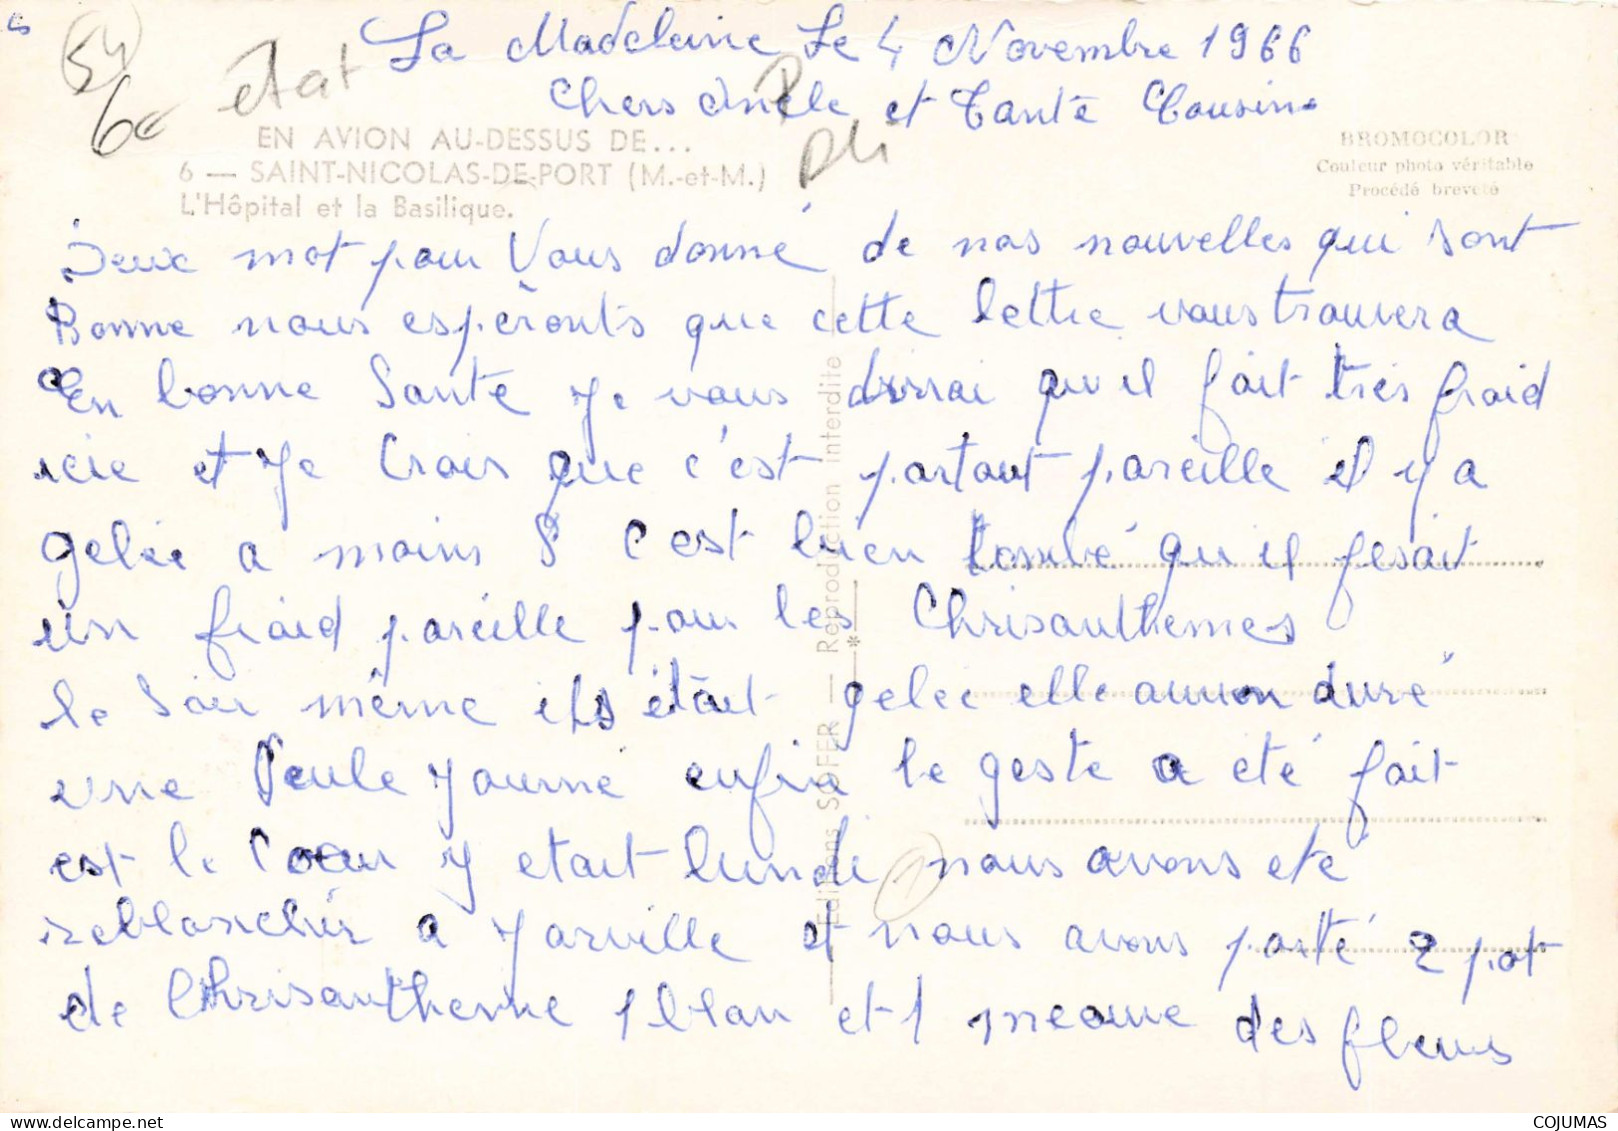 La Madeleine Le 4 Novembre 1966
Chers Oncle et Tante Cousins
54
6€
état
EN AVION AU-DESSUS DE...
6 — SAINT-NICOLAS-DE-PORT (M.-et-M.)
L'Hôpital et la Basilique.
BROMOCOLOR
Couleur photo véritable
Procédé breveté
Deux mot pour Vous donné de nos nouvelles qui sont
Bonne nous espèronts que cette lettre vous trouvera
En bonne Santé Je vous dirai qu il fait très froid
icie et Je Crois que c'est partout pareille il y a
gelée a moins 8 C est bien tombé qu il fesait
un froid pareille pour les Chrisanthemes
le Soir même ils était gelee elle auron duré
une Seule Journé enfin le geste a été fait
est le Coeur y etait lundi nous avons ete
a Jarville et nous avons porté 2 pot
de Chrisantheme 1 blan et 1 meauve des fleurs
Editions SOFER — Reproduction interdite
1
COJUMAS